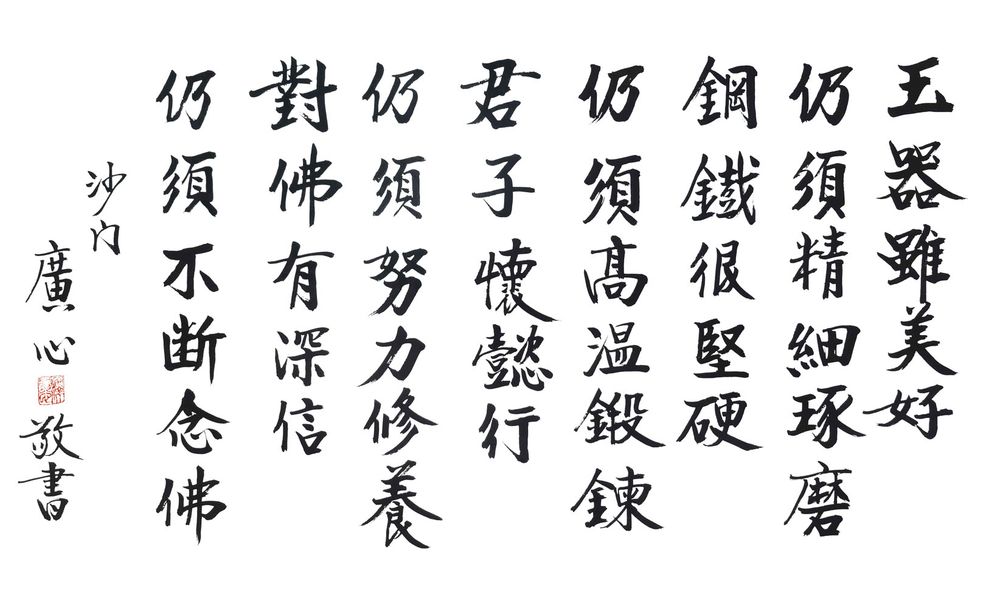 玉器雖美好
仍須精細琢磨
鋼鐵很堅硬
仍須高溫鍛鍊
君子懷懿行
仍須努力修養
對佛有深信
仍須不断念佛
沙门
廣心敬書